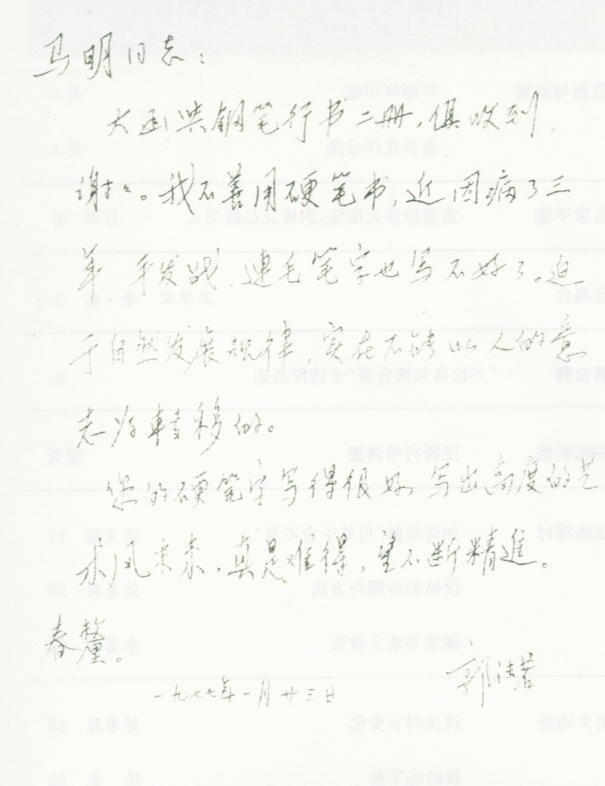 马明同志：
大函與钢笔行书二册，俱收到，
谢谢。我不善用硬笔书，近因病了三
年，手发战，連毛笔字也写不好了。迫
于自然发展规律，实在不能以人的意
志为转移的。
您的硬笔字写得很好，写出高度的艺
术风来来，真是难得，望不断精進。
春釐。
郭沫若
一九七七年一月廿三日